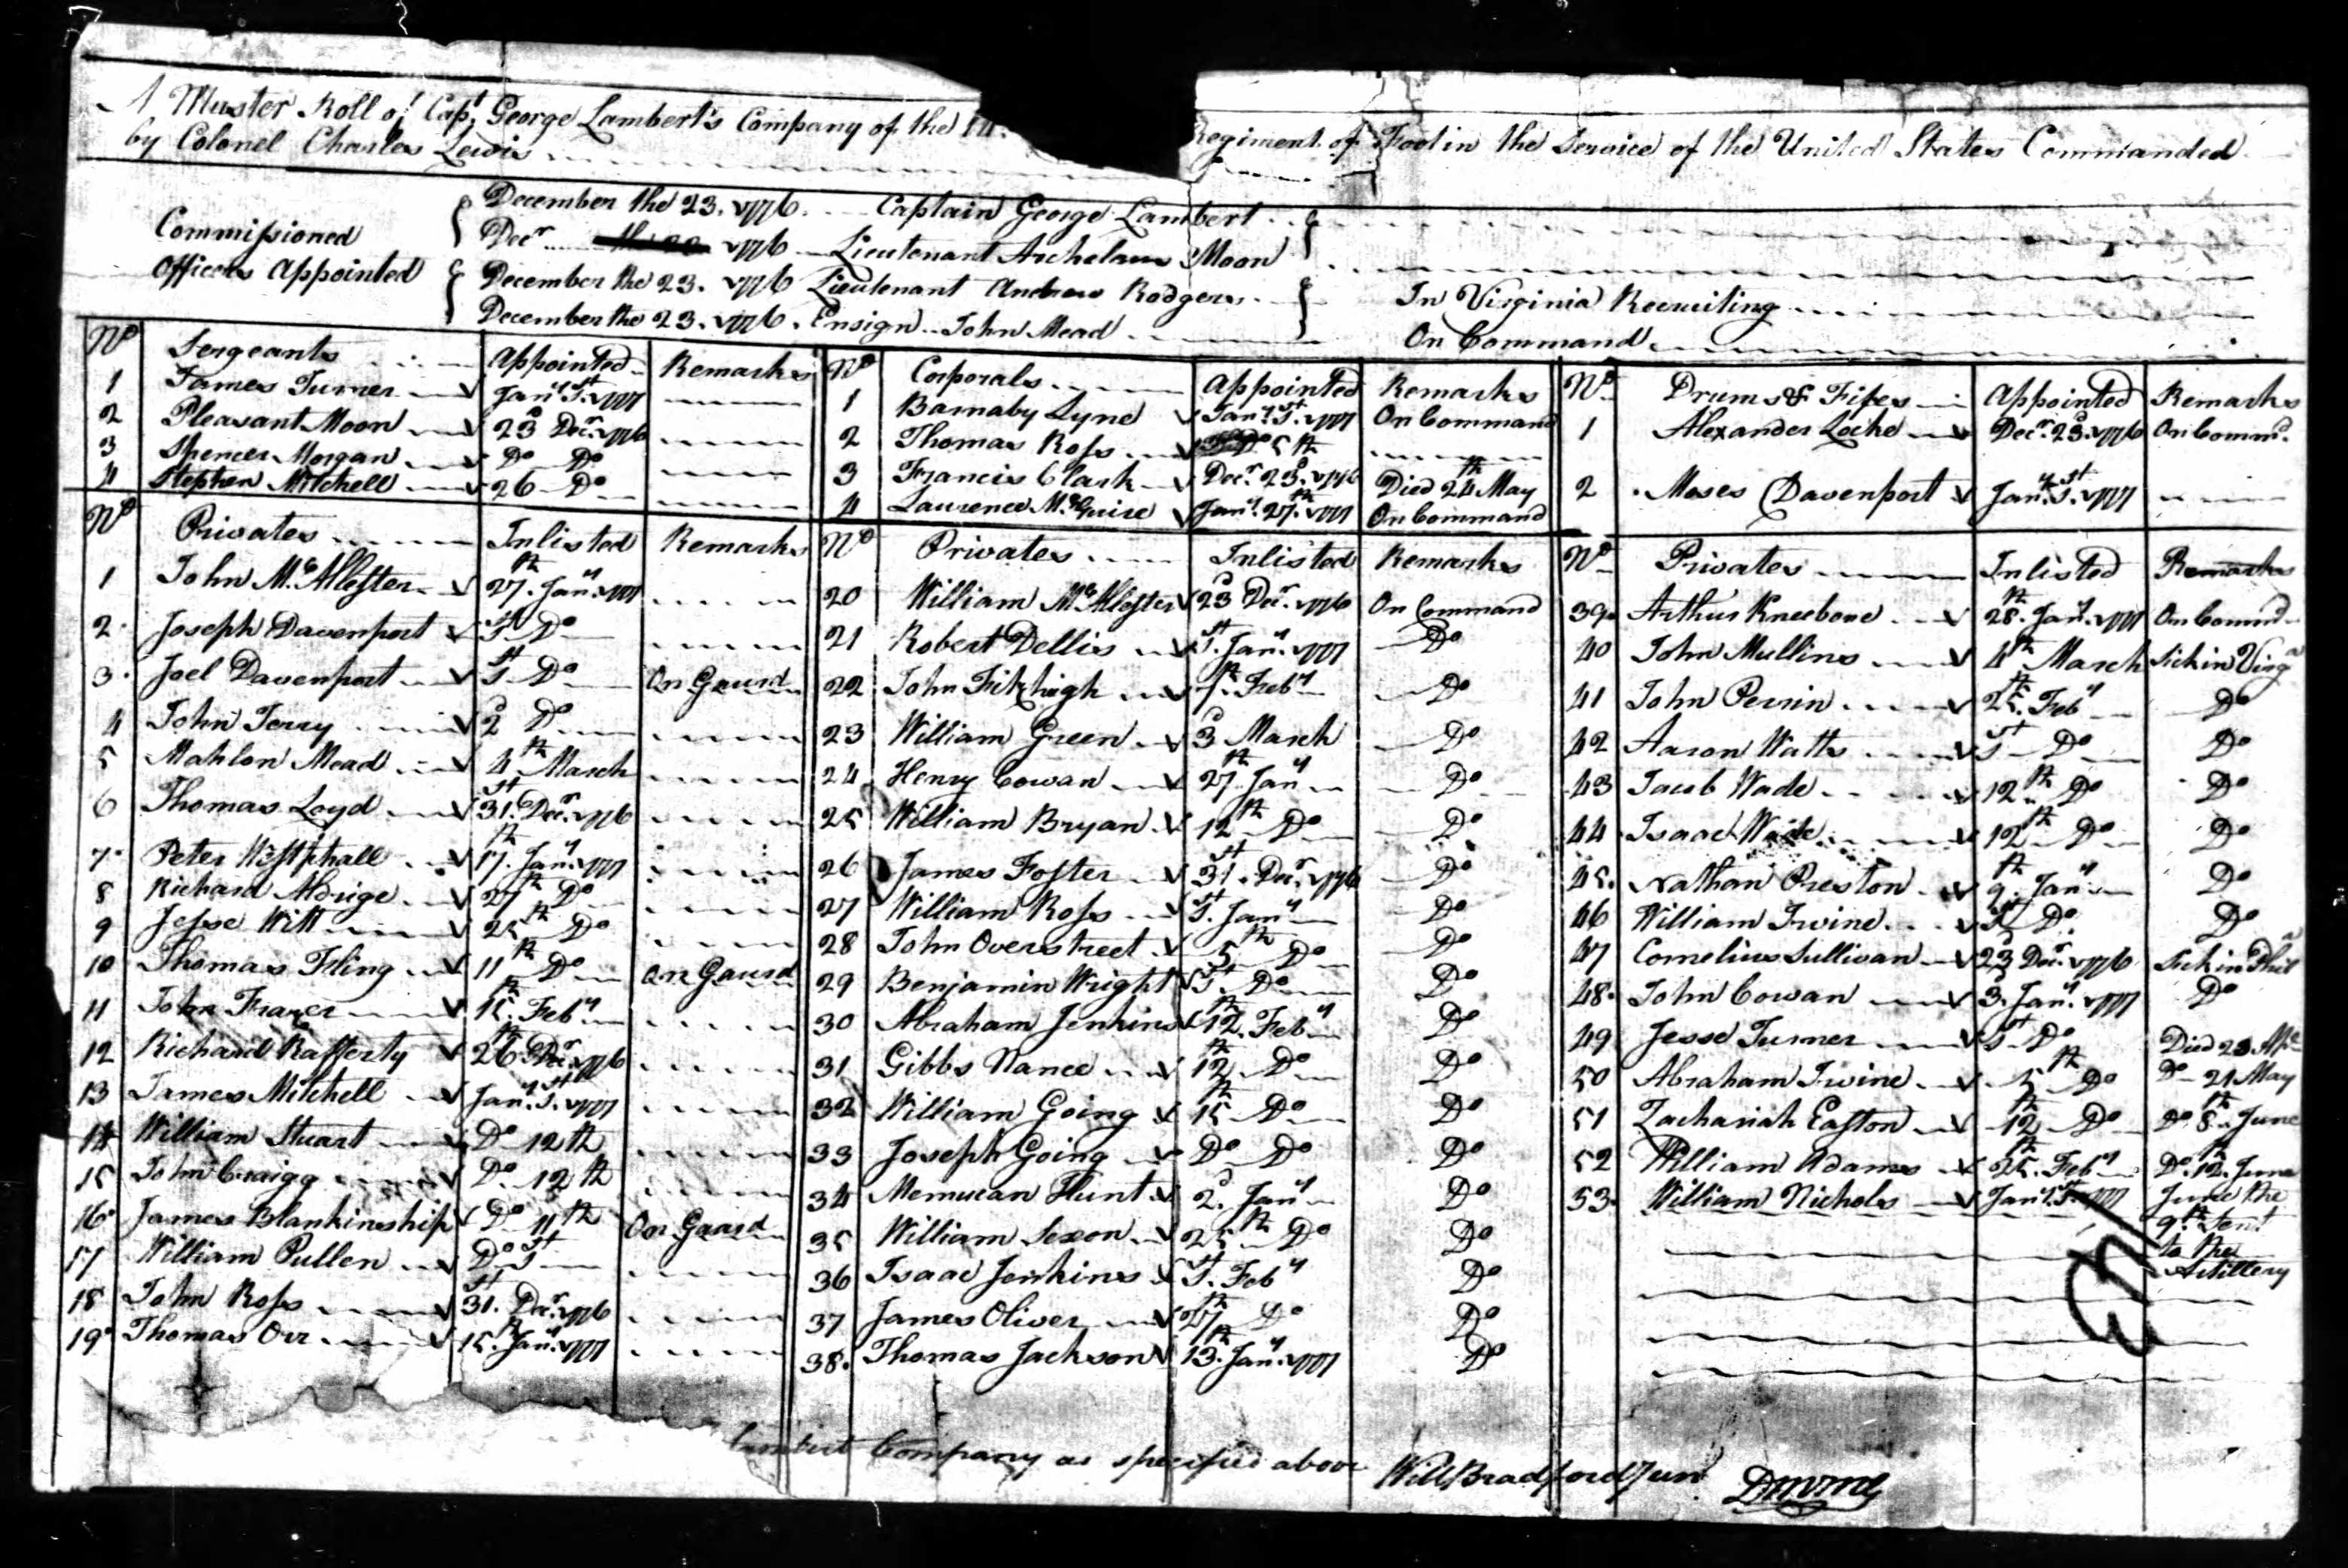 A Muster Roll of Capt. George Lambert's Company of the 14. Regiment of Foot in the Service of the United States Commanded
by Colonel Charles Lewis
Commissioned
Officers Appointed
December the 23. 1776. Captain George Lambert
Decr 1776 Lieutenant Archelaus Moon
December the 23. 1776 Lieutenant Andrew Rodgers In Virginia Recruiting
December the 23. 1776. Ensign John Mead On Command
No Sergeants Appointed Remarks
1 James Turner Jany 1st 1777
2 Pleasant Moon 23d Decr 1776
3 Spencer Morgan Do Do
4 Stephen Mitchell 26 Do
No Corporals Appointed Remarks
1 Barnaby Lyne Jany 1st 1777 On Command
2 Thomas Ross Do 5th
3 Francis Clark Decr 23d 1776 Died 24th May
4 Laurence McGuire Jany 27th 1777 On Command
No Drums & Fifes Appointed Remarks
1 Alexander Locke Decr 23d 1776 On Commd.
2 Moses Davenport Jany 1st 1777
No Privates Inlisted Remarks
1 John McAllester 27th Jany 1777
2 Joseph Davenport 1st Do
3 Joel Davenport 1st Do On Gaurd
4 John Terry 2d Do
5 Mahlon Mead 4th March
6 Thomas Loyd 31st Decr 1776
7 Peter Westphall 17th Jany 1777
8 Richard Aldrige 27th Do
9 Jesse Witt 25th Do
10 Thomas Fling 11th Do On Gaurd
11 John Frazer 15th Feby
12 Richard Rafferty 26th Decr 1776
13 James Mitchell Jany 1st 1777
14 William Stuart Do 12th
15 John Craigg Do 12th
16 James Blankinship Do 11th On Gaurd
17 William Pullen Do 1st
18 John Ross 31st Decr 1776
19 Thomas Orr 15th Jany 1777
No Privates Inlisted Remarks
20 William McAllester 23d Decr 1776 On Command
21 Robert Dellis 1st Jany 1777 Do
22 John Fitzhigh Feby Do
23 William Green 3d March Do
24 Henry Cowan 27th Jany Do
25 William Bryan 12th Do Do
26 James Foster 31st Decr 1776 Do
27 William Ross 1st Jany Do
28 John Overstreet 5th Do Do
29 Benjamin Wright 1st Do Do
30 Abraham Jenkins 12th Feby Do
31 Gibbs Nance 12th Do Do
32 William Going 15th Do Do
33 Joseph Going Do Do Do
34 Memucan Hunt 2d Jany Do
35 William Sexon 25th Do Do
36 Isaac Jenkins 1st Feby Do
37 James Oliver 27th Do Do
38. Thomas Jackson 13th Jany 1777 Do
No Privates Inlisted Remarks
39 Arthur Kneebone 28th Jany 1777 On Commd
40 John Mullins 4th March Sick in Virga
41 John Perrin 25th Feby Do
42 Aaron Watts 1st Do Do
43 Jacob Wade 12th Do Do
44 Isaac Wade 12th Do Do
45. Nathan Preston 9th Jany Do
46 William Irwine 1st Do Do
47 Cornelius Sullivan 23d Decr 1776 Sick in Phila
48. John Cowan 3d Jany 1777 Do
49 Jesse Turner 1st Do Died 23 Apl
50 Abraham Irwine 5th Do Do 21 May
51 Zachariah Easton 12th Do Do 8th June
52 William Adams 25th Feby Do 12th June
53. William Nichols Jany 1st 1777 June the
9th Sent
to the
Artillery
Lambert Company as specified above Will Bradford Jun DMMG